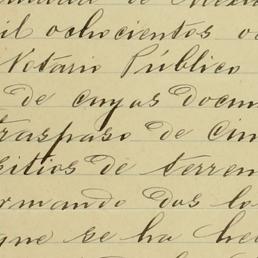 de
il ochocientos o
Notario Público
de cuyas docum
traspaso de cin
sitios de terren
rmando dos lo
que se ha he